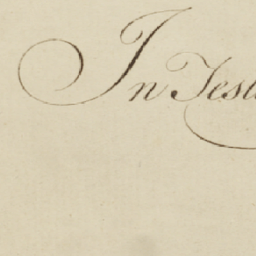 In Test